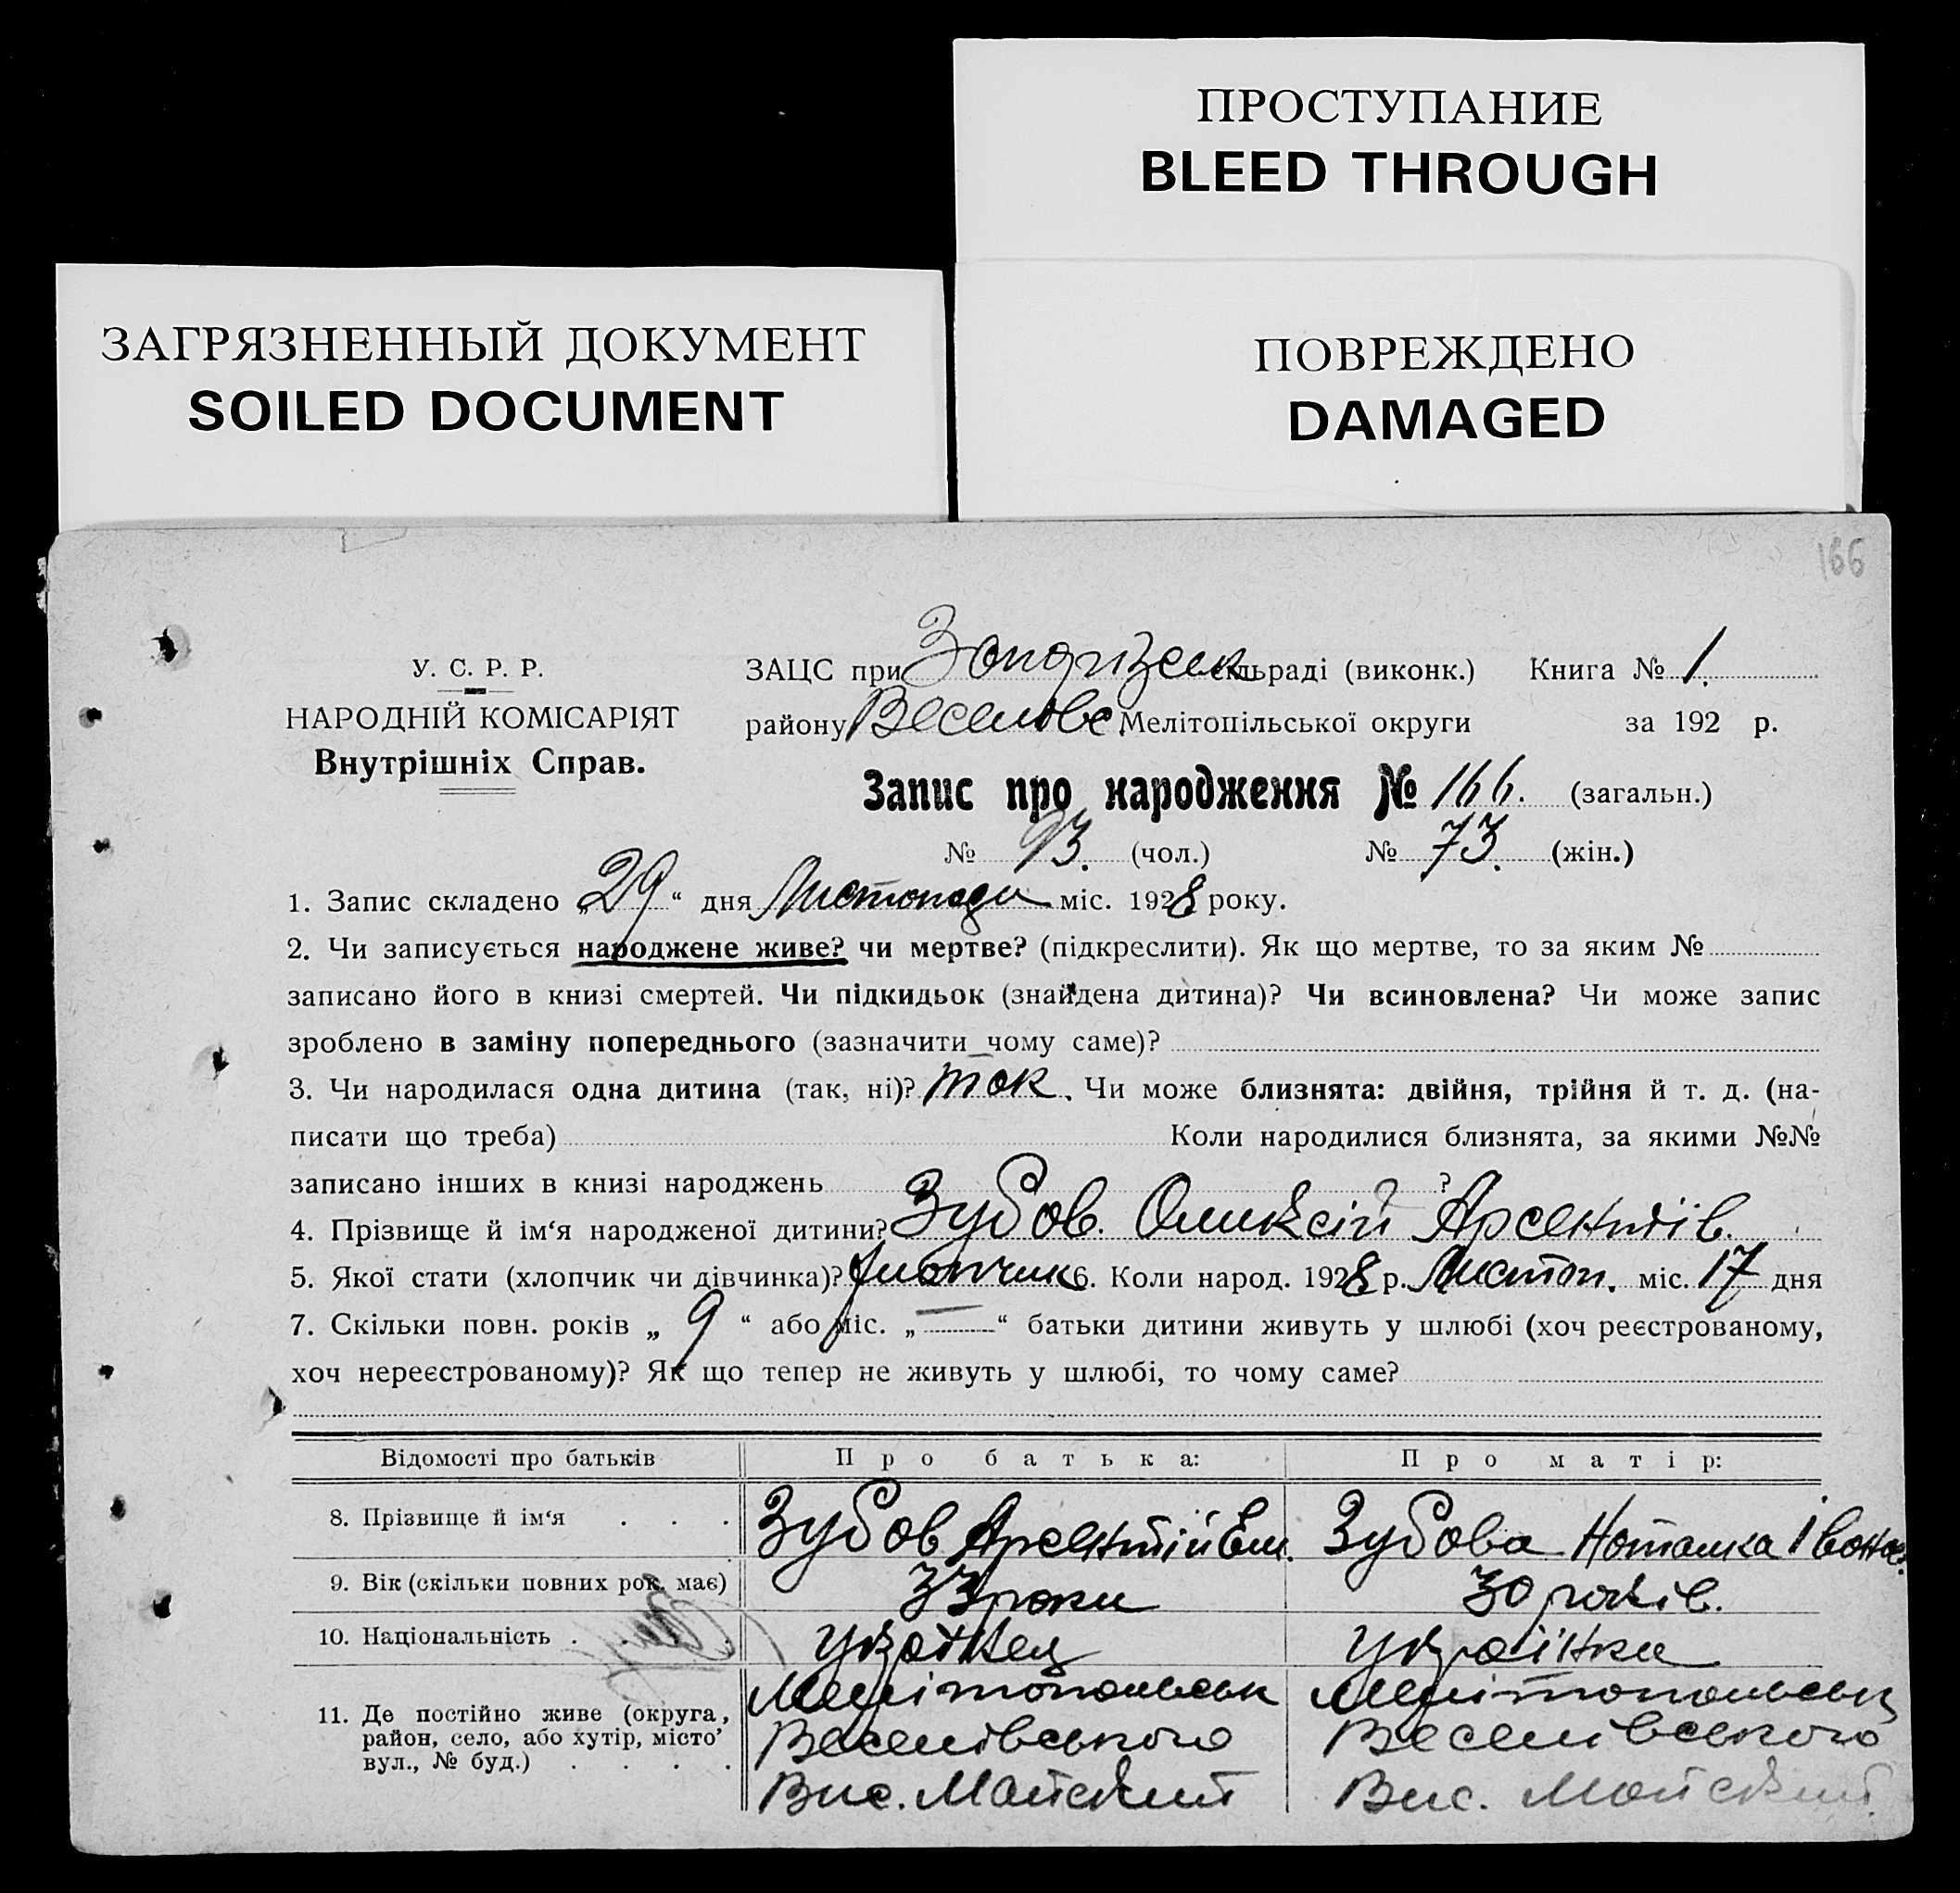 ПРОСТУПАНИЕ
BLEED THROUGH
ЗАГРЯЗНЕННЫЙ ДОКУМЕНТ
SOILED DOCUMENT
ПОВРЕЖДЕНО
DAMAGED
166
У. С. Р. Р.
НАРОДНІЙ КОМІСАРІЯТ
Внутрішніх Справ.
ЗАЦС при сільраді (виконк.) Книга № 1.
району Веселовс Мелітопільської округи за 192 р.
Запис про народження № 166. (загальн.)
№ 93. (чол.) № 73. (жін.)
1. Запис складено „29“ дня Листопада міс. 1928 року.
2. Чи записується народжене живе? чи мертве? (підкреслити). Як що мертве, то за яким №
записано його в книзі смертей. Чи підкидьок (знайдена дитина)? Чи всиновлена? Чи може запис
зроблено в заміну попереднього (зазначити чому саме)?
3. Чи народилася одна дитина (так, ні)? так. Чи може близнята: двійня, трійня й т. д. (на-
писати що треба) Коли народилися близнята, за якими №№
записано інших в книзі народжень ?
4. Прізвище й ім‘я народженої дитини? Зубов. Оликсій Арсентіів.
5. Якої стати (хлопчик чи дівчинка)? Хлопчик 6. Коли народ. 1928 р. Листоп. міс. 17 дня
7. Скільки повн. років „ 9 “ або міс. „—“ батьки дитини живуть у шлюбі (хоч реєстрованому,
хоч нереєстрованому)? Як що тепер не живуть у шлюбі, то чому саме?
Відомості про батьків Про батька: Про матір:
8. Прізвище й ім‘я . . . Зубов Арсентій Ем. Зубова Наталка Івана.
9. Вік (скільки повних рок. має) 33 роки 30 років.
10. Національність . . . . Українец Українка
11. Де постійно живе (округа, район, село, або хутір, місто’ вул., № буд.) . . . .
Мелітопольськ Мелітопольськ
Веселівського Веселівського
Вис. Майський Вис. Майський